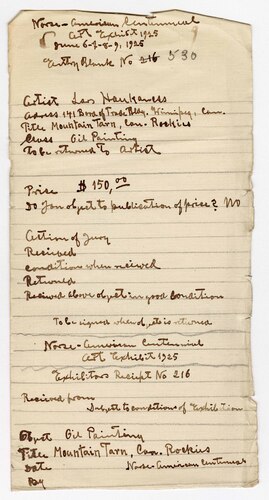 Norse-American Centennial
Art Exhibit 1925
June 6-7-8-9, 1925
Entry Blank No 216 530
Artist Lars Haukaness
Address 141 Board of Trade Bldg. Winnipeg, Can.
Title Mountain Tarn, Can. Rockies
Class Oil Painting
To be returned to Artist
Price $150,00
Do you object to publication of price? No
Action of Jury
Received
condition when received
Returned
Received above object in good condition
To be signed when object is returned
Norse-American Centennial
Art Exhibit 1925
Exhibitors Receipt No 216
Received from
Subject to conditions of Exhibition
Object Oil Painting
Title Mountain Tarn, Can. Rockies
Date Norse-American Centennial
By